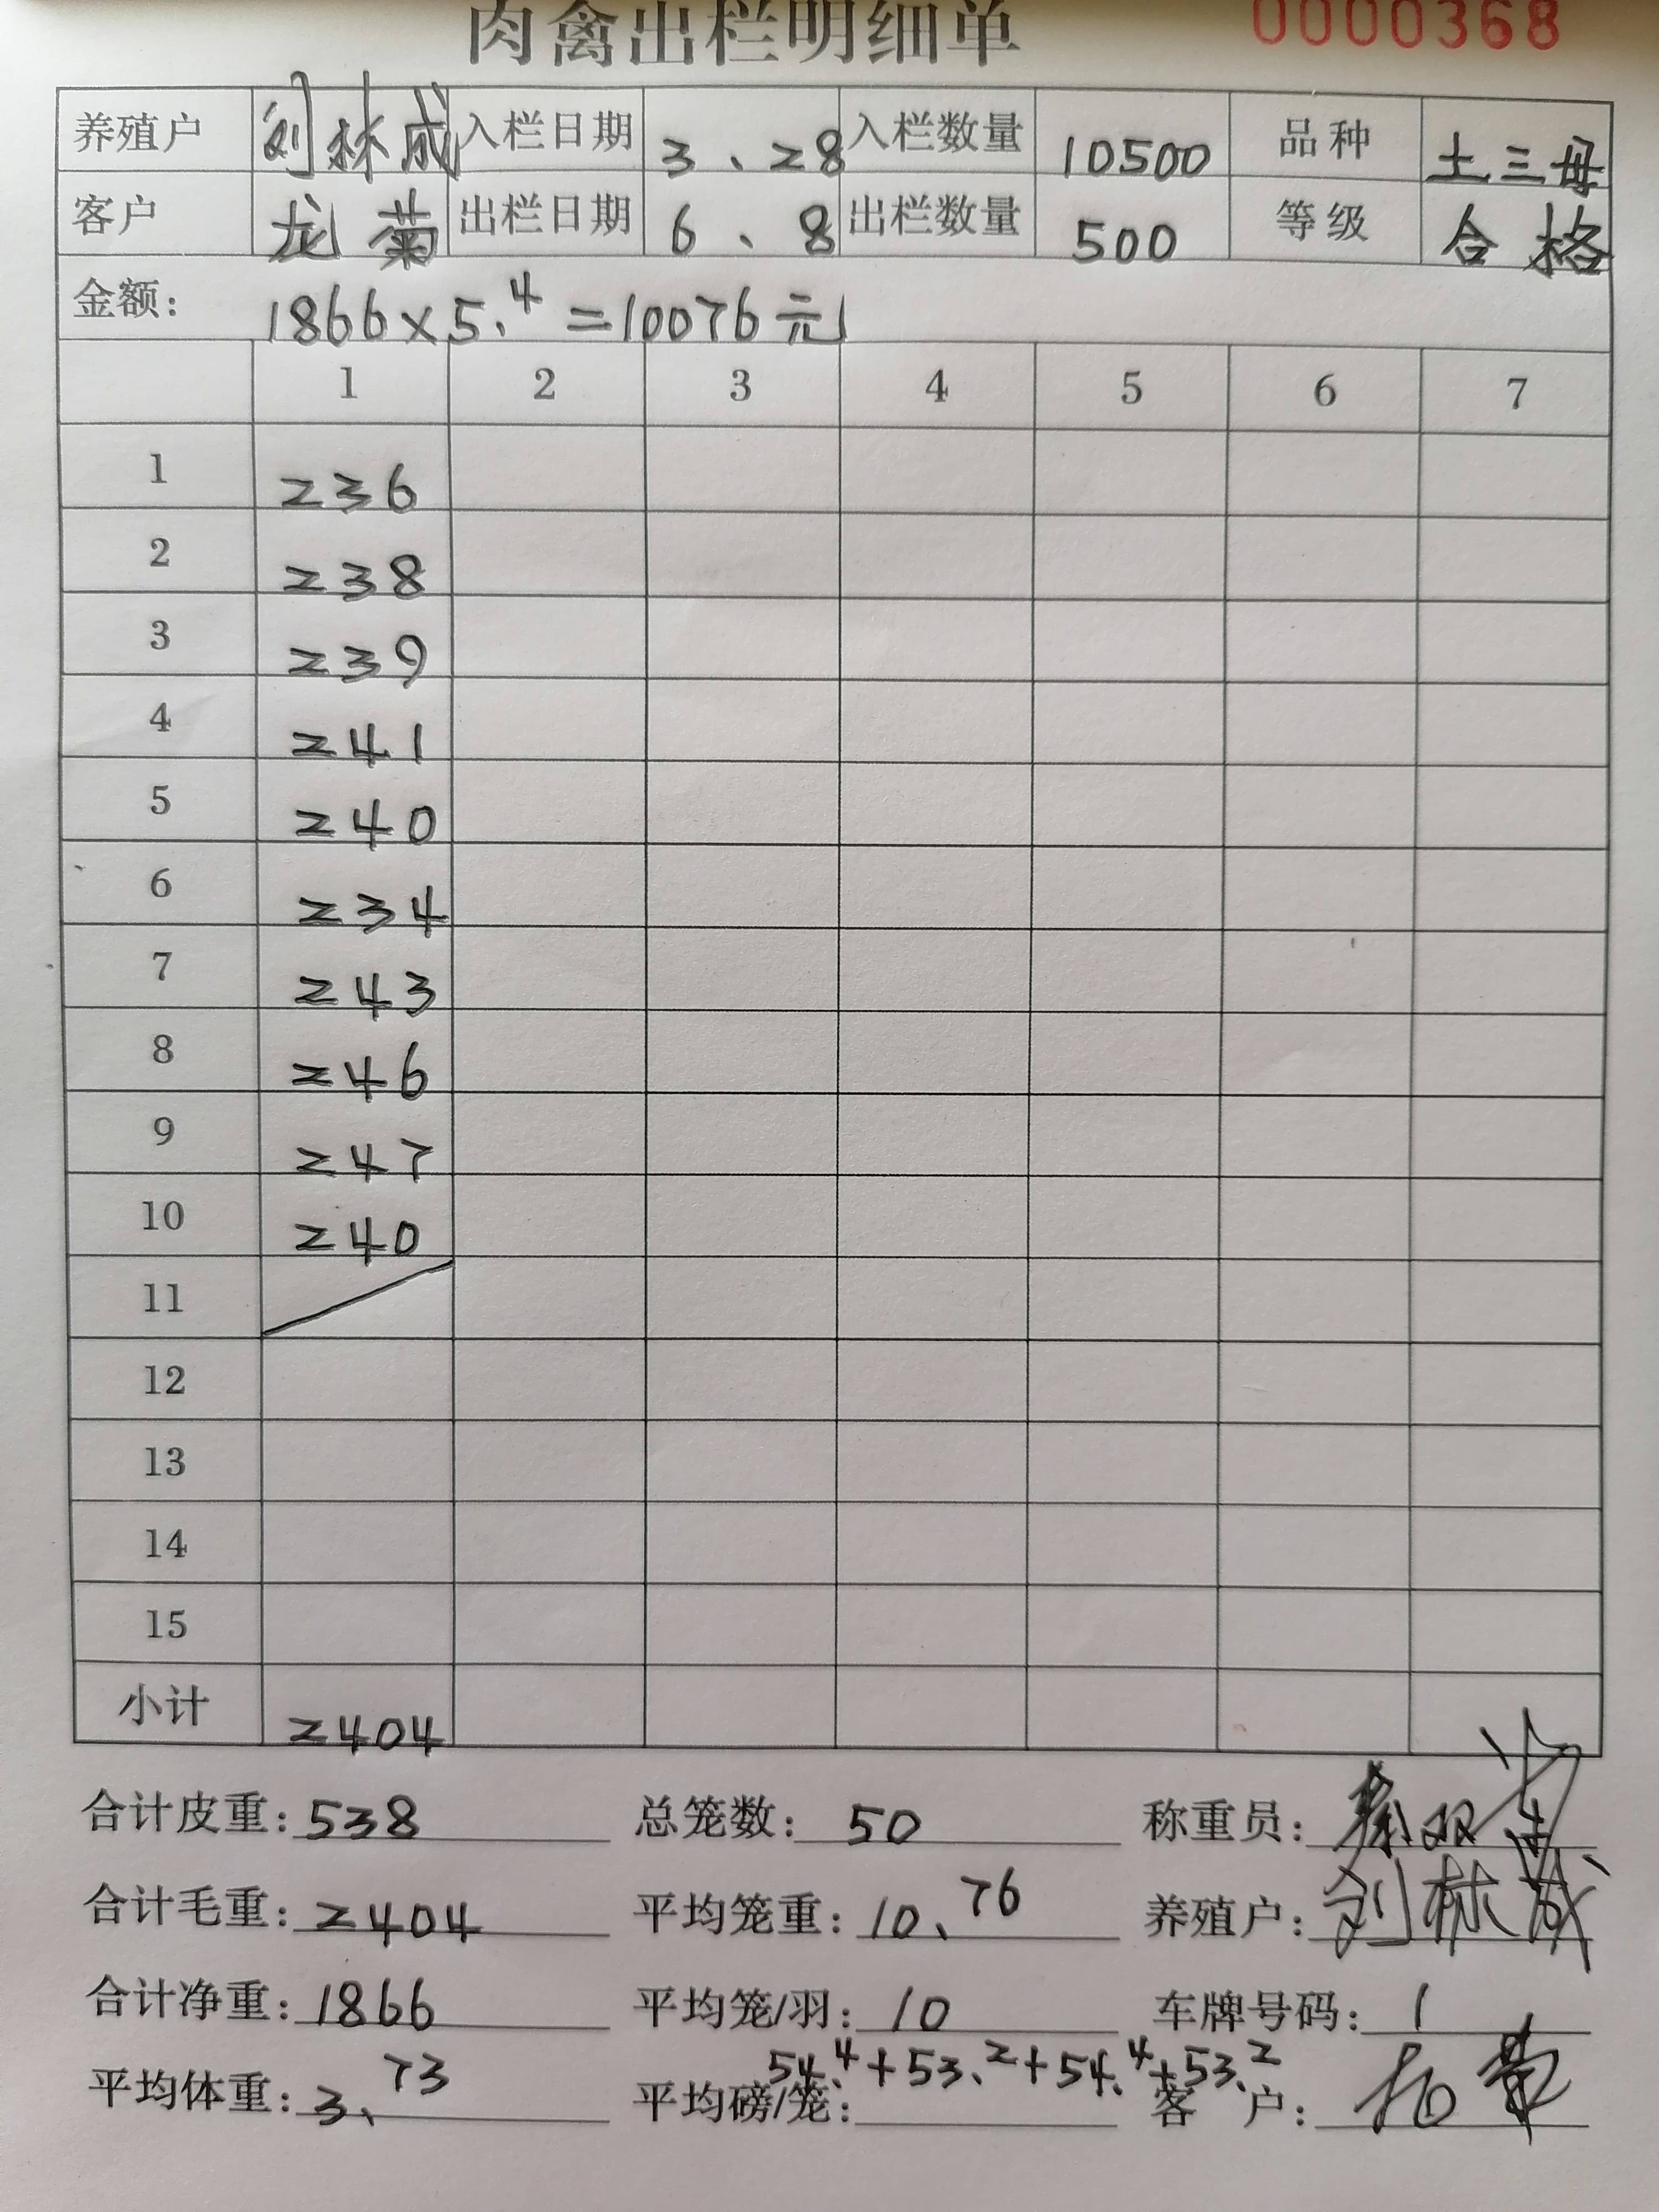 肉禽出栏明细单 0000368
养殖户 刘林成 入栏日期 3、28 入栏数量 10500 品种 土三母
客户 龙菊 出栏日期 6、8 出栏数量 500 等级 合格
金额: 1866×5.4=10076元
1 2 3 4 5 6 7
1 236
2 238
3 239
4 241
5 240
6 234
7 243
8 246
9 247
10 240
11
12
13
14
15
小计 2404
合计皮重: 538 总笼数: 50 称重员:
合计毛重: 2404 平均笼重: 10、76 养殖户: 刘林成
合计净重: 1866 平均笼/羽: 10 车牌号码: 1
54.4+53.2+54.4+53.2
平均体重: 3、73 平均磅/笼: 客户: